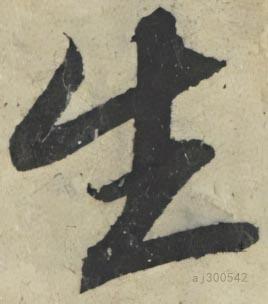 生
aj300542